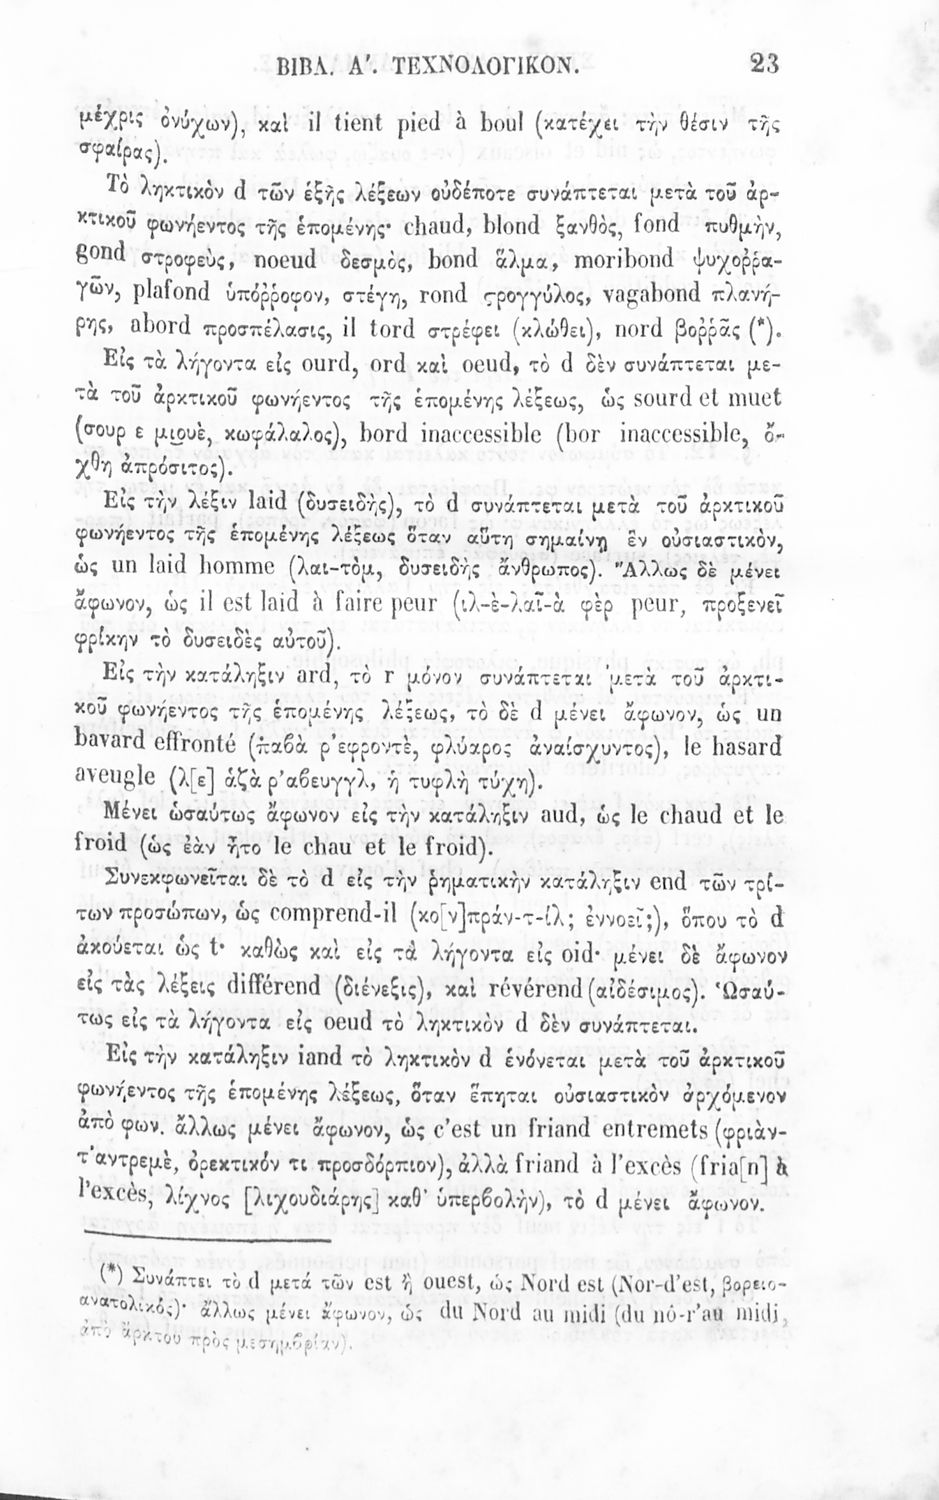 ΒΙΒΛ. Α'. ΤΕΧΝΟΛΟΓΙΚΟΝ. 23
μέχρις ὀνύχων), καὶ il tient pied à boul (κατέχει τὴν θέσιν τῆς
σφαίρας).
Τὸ ληκτικὸν d τῶν ἑξῆς λέξεων οὐδέποτε συνάπτεται μετὰ τοῦ ἀρ-
κτικοῦ φωνήεντος τῆς ἑπομένης· chaud, blond ξανθὸς, fond πυθμὴν,
gond στροφεὺς, noeud δεσμὸς, bond ἅλμα, moribond ψυχοῤῥα-
γῶν, plafond ὑπόῤῥοφον, στέγη, rond ςρογγύλος, vagabond πλανή-
ρης, abord προσπέλασις, il tord στρέφει (κλώθει), nord βοῤῥᾶς (*).
Εἰς τὰ λήγοντα εἰς ourd, ord καὶ oeud, τὸ d δὲν συνάπτεται με-
τὰ τοῦ ἀρκτικοῦ φωνήεντος τῆς ἑπομένης λέξεως, ὡς sourd et muet
(σουρ ε μιουὲ, κωφάλαλος), bord inaccessible (bor inaccessible, ὄ-
χθη ἀπρόσιτος).
Εἰς τὴν λέξιν laid (δυσειδὴς), τὸ d συνάπτεται μετὰ τοῦ ἀρκτικοῦ
φωνήεντος τῆς ἑπομένης λέξεως ὅταν αὕτη σημαίνῃ ἓν οὐσιαστικὸν,
ὡς un laid homme (λαι-τὸμ, δυσειδὴς ἄνθρωπος). Ἄλλως δὲ μένει
ἄφωνον, ὡς il est laid à faire peur (ιλ-ὲ-λαῖ-ὰ φὲρ peur, προξενεῖ
φρίκην τὸ δυσειδὲς αὐτοῦ).
Εἰς τὴν κατάληξιν ard, τὸ r μόνον συνάπτεται μετὰ τοῦ ἀρκτι-
κοῦ φωνήεντος τῆς ἑπομένης λέξεως, τὸ δὲ d μένει ἄφωνον, ὡς un
bavard effronté (παβὰ ρ'εφροντὲ, φλύαρος ἀναίσχυντος), le hasard
aveugle (λ[ε] ἁζὰ ρ'αβευγγλ, ἡ τυφλὴ τύχη).
Μένει ὡσαύτως ἄφωνον εἰς τὴν κατάληξιν aud, ὡς le chaud et le
froid (ὡς ἐὰν ἦτο le chau et le froid).
Συνεκφωνεῖται δὲ τὸ d εἰς τὴν ῥηματικὴν κατάληξιν end τῶν τρί-
των προσώπων, ὡς comprend-il (κο[ν]πράν-τ-ίλ; ἐννοεῖ;), ὅπου τὸ d
ἀκούεται ὡς t· καθὼς καὶ εἰς τὰ λήγοντα εἰς oid· μένει δὲ ἄφωνον
εἰς τὰς λέξεις différend (διένεξις), καὶ révérend (αἰδέσιμος). Ὡσαύ-
τως εἰς τὰ λήγοντα εἰς oeud τὸ ληκτικὸν d δὲν συνάπτεται.
Εἰς τὴν κατάληξιν iand τὸ ληκτικὸν d ἑνόνεται μετὰ τοῦ ἀρκτικοῦ
φωνήεντος τῆς ἑπομένης λέξεως, ὅταν ἕπηται οὐσιαστικὸν ἀρχόμενον
ἀπὸ φων. ἄλλως μένει ἄφωνον, ὡς c'est un friand entremets (φριὰν-
τ'αντρεμὲ, ὀρεκτικόν τι προσδόρπιον), ἀλλὰ friand à l'excès (fria[n] à
l'excès, λίχνος [λιχουδιάρης] καθ' ὑπερβολὴν), τὸ d μένει ἄφωνον.
(*) Συνάπτει τὸ d μετά τῶν est ἢ ouest, ὡς Nord est (Nor-d'est, βορειο-
ανατολικός)· ἄλλως μένει ἄφωνον, ὡς du Nord au midi (du nô-r'au midi,
ἀπὸ ἄρκτου πρὸς μεσημβρίαν).